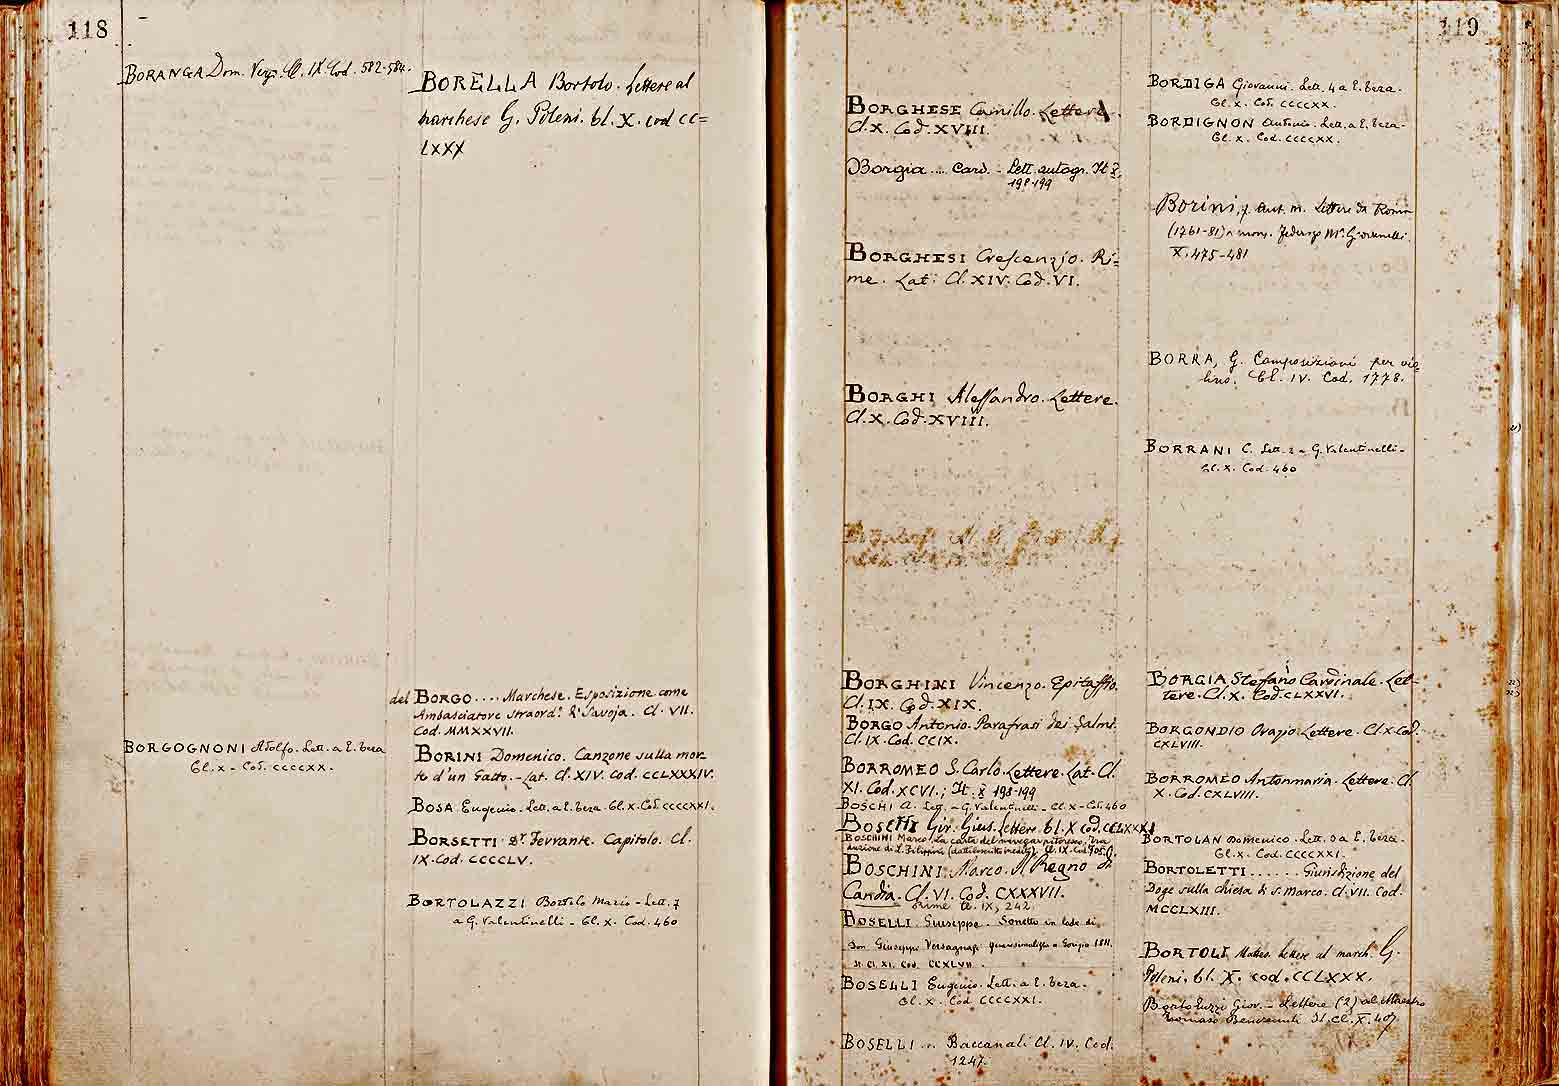 118
BORANGA Dom. Vers. Cl. IX Cod. 582-584.
BORGOGNONI Adolfo. Lett. a E. Teza
Cl. X - Cod. CCCCXX.
BORELLA Bortolo. Lettere al
marchese G. Poleni. Cl. X. cod CC=
LXXX
del BORGO .... Marchese. Esposizione come
Ambasciatore straord.º di Savoja. Cl. VII.
Cod. MMXXVII.
BORINI Domenico. Canzone sulla mor-
te d'un Gatto. - Lat. Cl. XIV. Cod. CCLXXXIV.
BOSA Eugenio. Lett. a E. Teza. Cl. X. Cod CCCCXXI.
BORSETTI Dr. Ferrante. Capitolo. Cl.
IX. Cod. CCCCLV.
BORTOLAZZI Bortolo Mario - Lett. 7
a G. Valentinelli - Cl. X. Cod. 460
119
BORGHESE Camillo. Lettere.
Cl. X. Cod. XVIII.
Borgia .... Card. - Lett. autogr. It X,
198-199
BORGHESI Crescenzio. Ri=
me. Lat: Cl. XIV. Cod. VI.
BORGHI Alessandro. Lettere.
Cl. X. Cod. XVIII.
BORGHINI Vincenzo. Epitaffio.
Cl. IX. Cod. XIX.
BORGO Antonio. Parafrasi dei Salmi.
Cl. IX. Cod. CCIX.
BORROMEO S. Carlo. Lettere. Lat. Cl.
XI. Cod. XCVI.; It. X 198-199
BOSCHI A. Lett. a G. Valentinelli - Cl. X - Cod. 460
BOSCHI Gir. Gius. Lettere. Cl. X Cod. CCLXXXI
BOSCHINI Marco. La carta del navegar pitoresco. Tra
duzione di L. Filippini (dattiloscritto inedito). Cl. IX. Cod. 705.
BOSCHINI Marco. Il Regno di
Candia. Cl. VI. Cod. CXXXVII.
Rime It. IX, 242
BOSELLI Giuseppe. Sonetto in lode di
Don Giuseppe quaresimalista a Gorizia 1811.
It. Cl. XI. Cod. CCXLVII.
BOSELLI Eugenio. Lett. a E. Teza.
Cl. X. Cod CCCCXXI.
BOSELLI ... Baccanali Cl. IV. Cod.
1247.
BORDIGA Giovanni. Lett. 4 a E. Teza.
Cl. X. Cod. CCCCXX.
BORDIGNON Antonio. Lett. a E. Teza.
Cl. X. Cod. CCCCXX.
Borini, f. Ant. m. Lettere da Roma
(1761-81) a mons. Federigo Ma. Giovanelli.
X. 475-481
BORRA, G. Composizioni per vio=
lino. Cl. IV. Cod. 1778.
BORRANI C. Lett. 2 a G. Valentinelli -
Cl. X. Cod. 460
BORGIA Stefano Cardinale. Let-
tere. Cl. X. Cod. CLXXVI.
BORGONDIO Orazio Lettere. Cl. X. Cod.
CXLVIII.
BORROMEO Antonmaria. Lettere. Cl.
X. Cod. CXLVIII.
BORTOLAN Domenico. Lett. 9 a E. Teza.
Cl. X. Cod. CCCCXXI.
BORTOLETTI ...... Giurisdizione del
Doge sulla chiesa di S. Marco. Cl. VII. Cod.
MCCLXIII.
BORTOLI Matteo. Lettere al march. G.
Poleni. Cl. X. cod. CCLXXX.
Bortoluzzi Giov. - Lettere (2) al Maestro
Tomaso Benvenuti It. Cl. X. 407